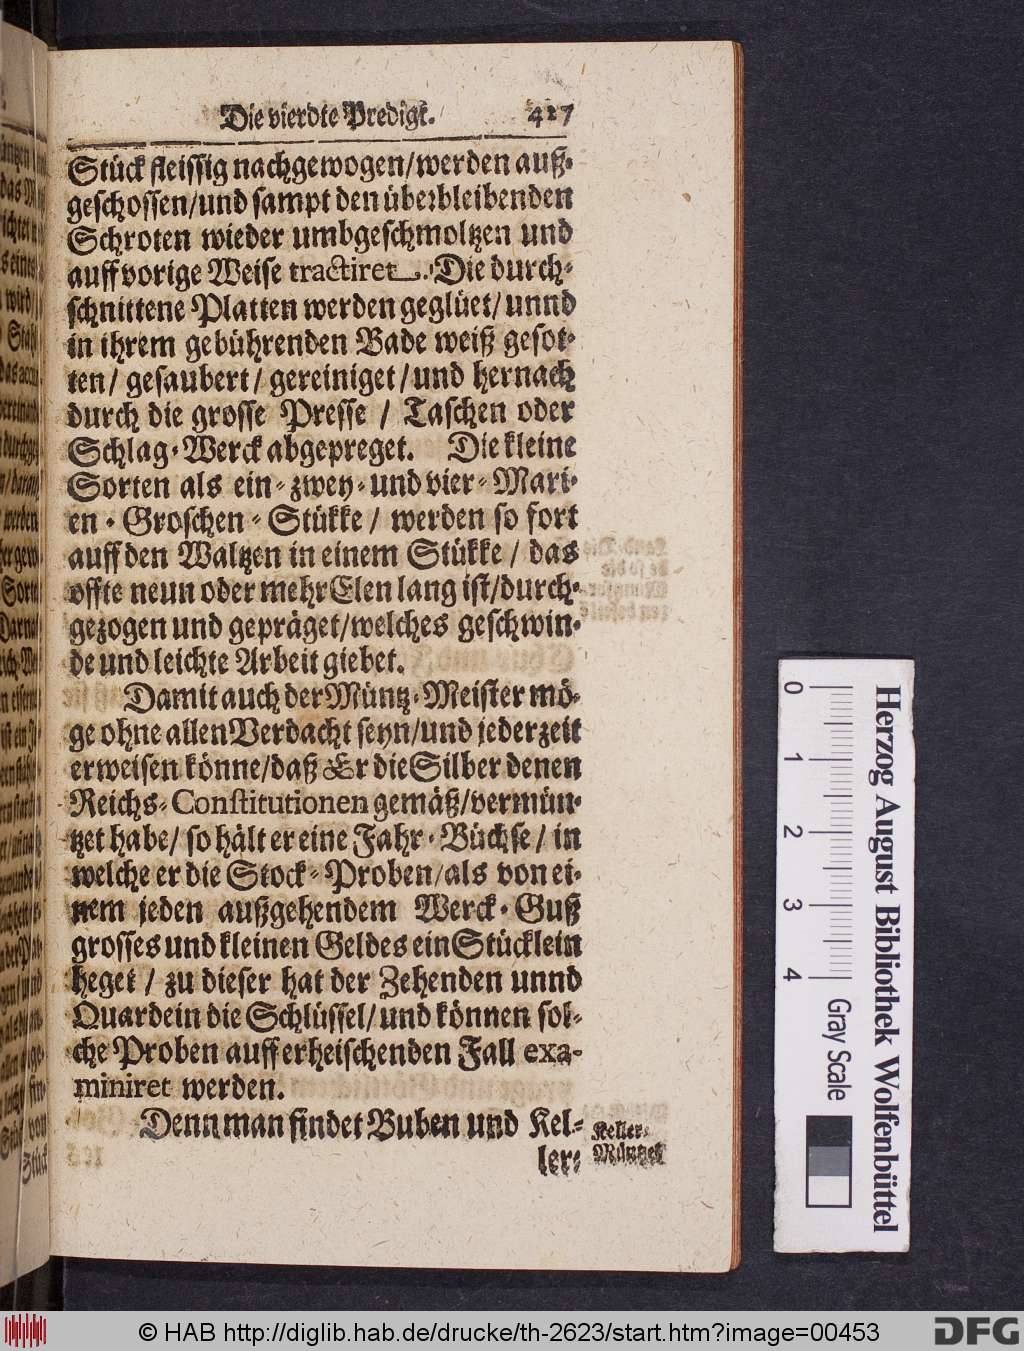 Die vierdte Predigt. 427
Stück fleissig nachgewogen/werden auß-
geschossen/und sampt den überbleibenden
Schroten wieder umbgeschmoltzen und
auff vorige Weise tractiret. Die durch-
schnittene Platten werden geglüet/ unnd
in ihrem gebührenden Bade weiß gesot-
ten/ gesaubert/ gereiniget/und hernach
durch die grosse Presse / Taschen oder
Schlag-Werck abgepreget. Die kleine
Sorten als ein- zwey- und vier- Mari-
en - Groschen - Stükke / werden so fort
auff den Waltzen in einem Stükke / das
offte neun oder mehr Elen lang ist/durch-
gezogen und gepräget/welches geschwin-
de und leichte Arbeit giebet.
Damit auch der Müntz-Meister mö-
ge ohne allen Verdacht seyn/und jederzeit
erweisen könne/daß Er die Silber denen
Reichs-Constitutionen gemäß/vermün-
tzet habe/ so hält er eine Fahr-Büchse/ in
welche er die Stock-Proben/als von ei-
nem jeden außgehendem Werck-Guß
grosses und kleinen Geldes ein Stücklein
heget / zu dieser hat der Zehenden unnd
Quardein die Schlüssel/ und können sol-
che Proben auff erheischenden Fall exa-
miniret werden.
Denn man findet Buben und Kel-
ler-
Keller-
Müntzer
0 1 2 3 4
Gray Scale
Herzog August Bibliothek Wolfenbüttel
© HAB http://diglib.hab.de/drucke/th-2623/start.htm?image=00453
DFG